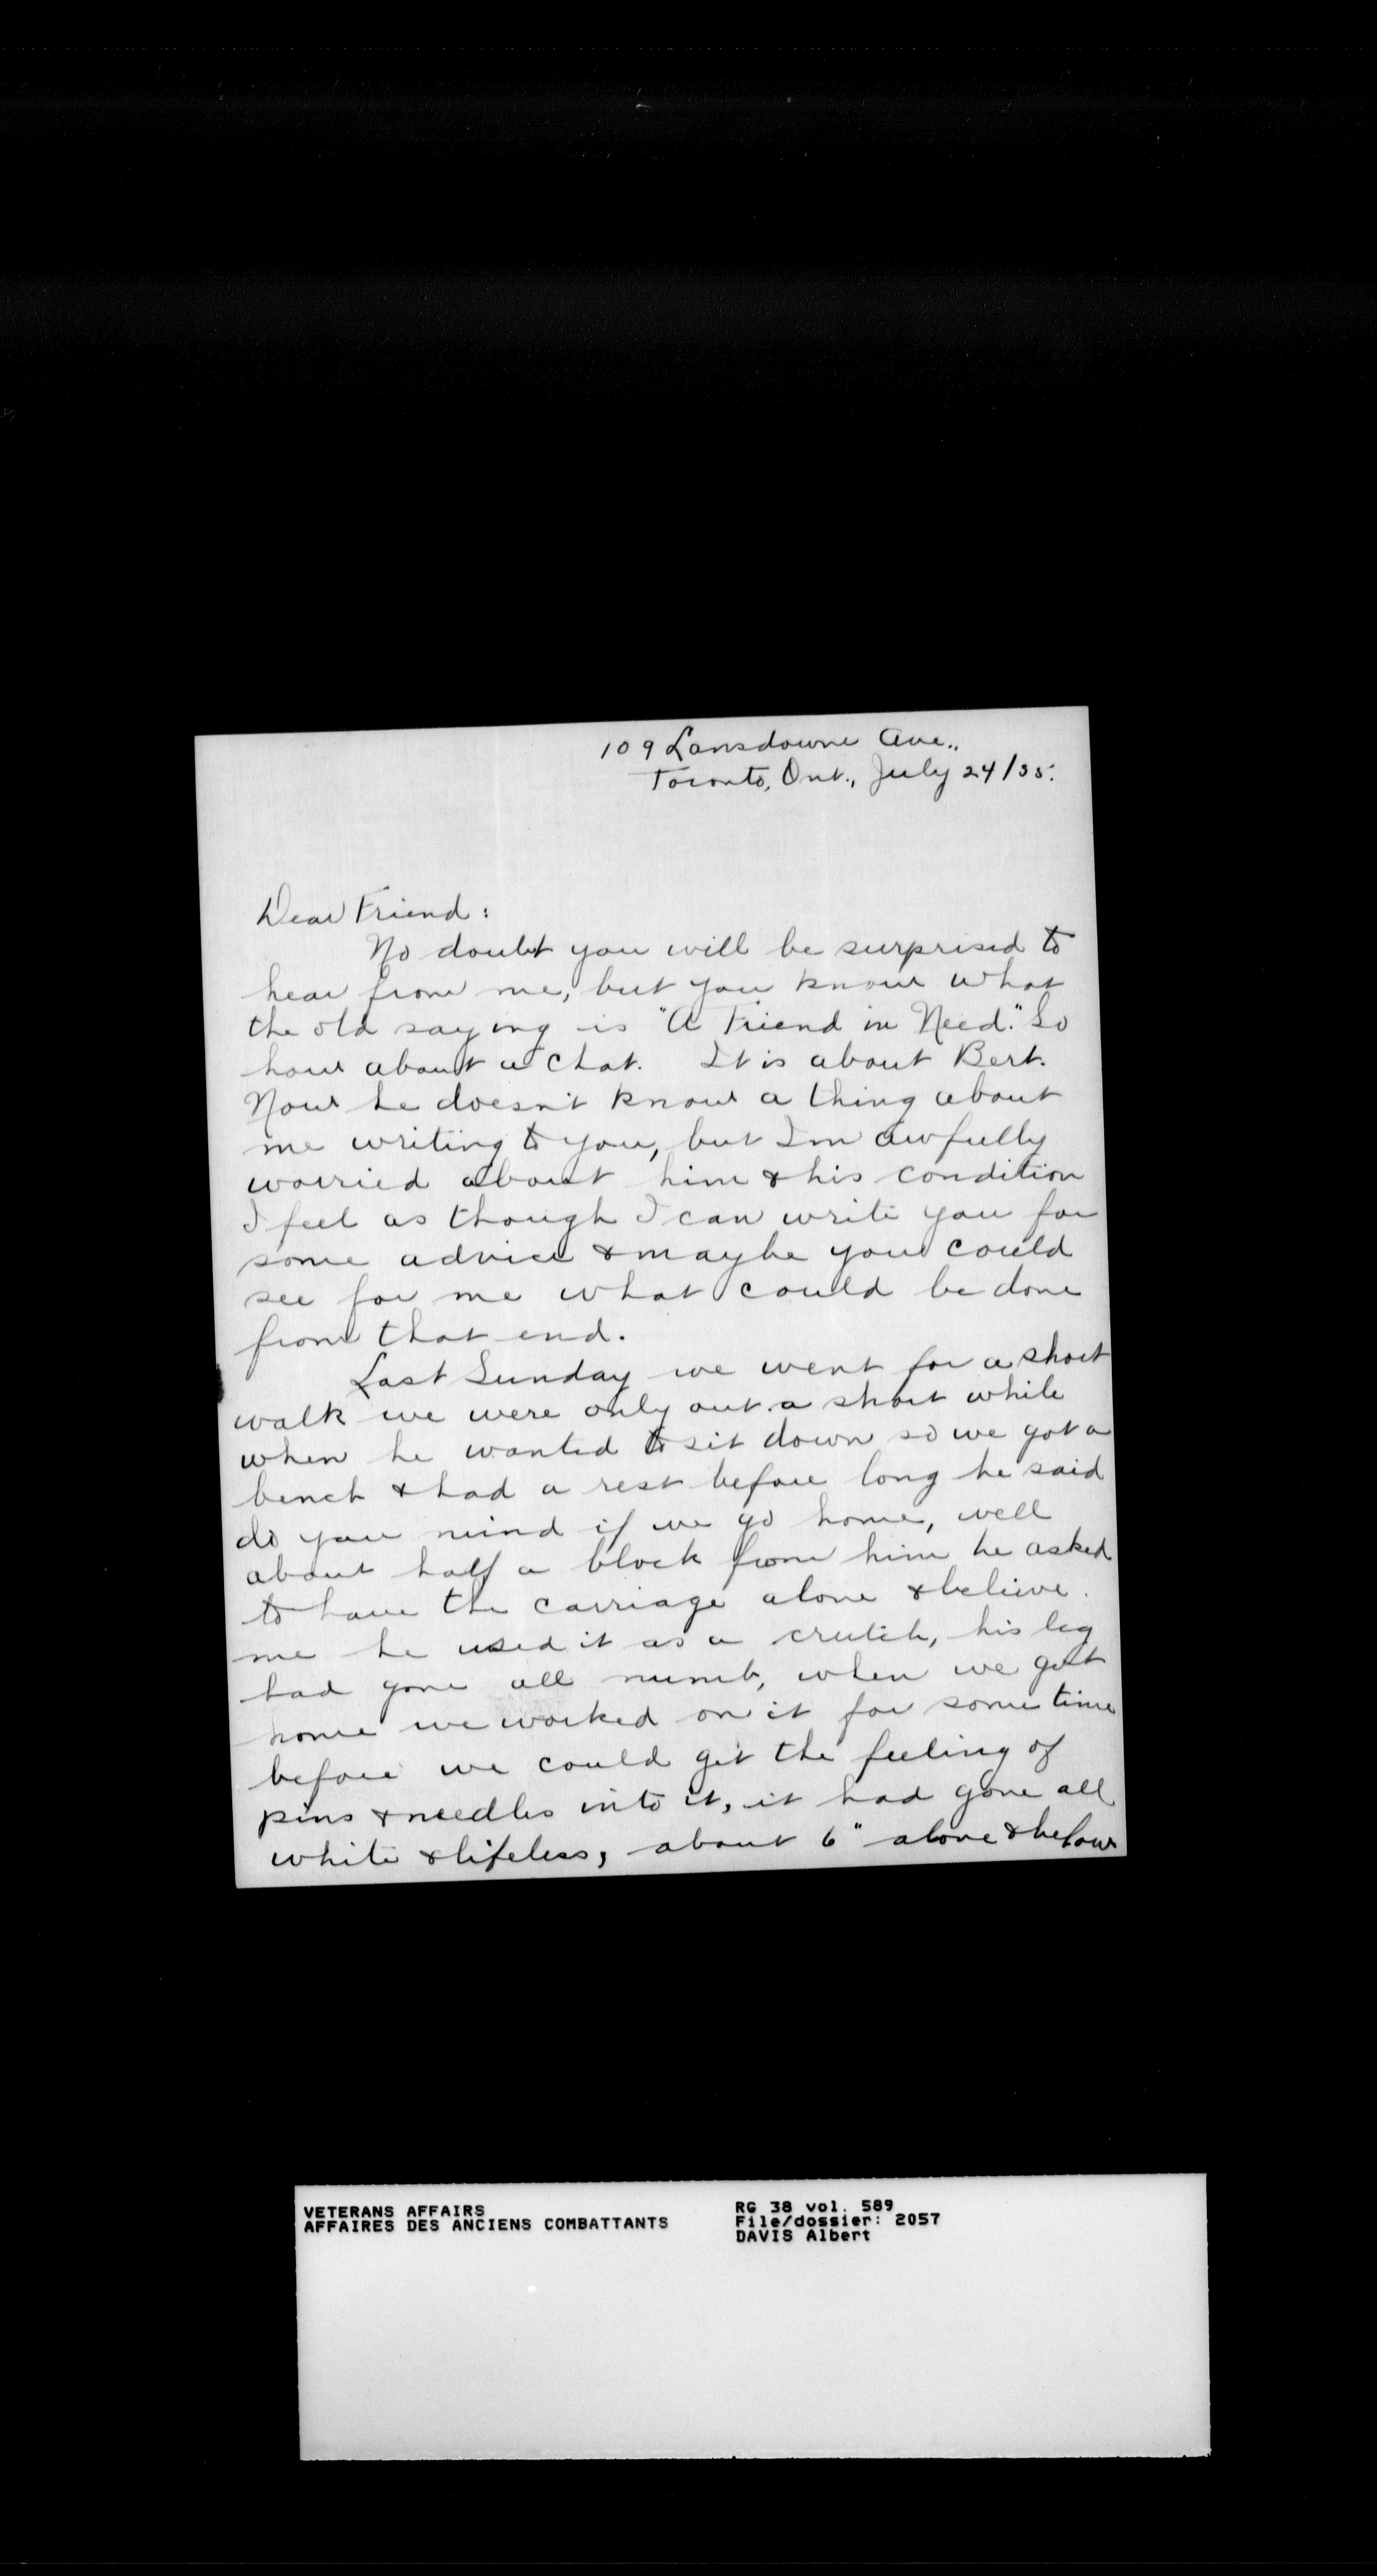 109 Lansdowne Ave.,
Toronto, Ont., July 24/35.
Dear Friend:
No doubt you will be surprised to
hear from me, but you know what
the old saying is "A Friend in Need." So
how about a chat. It is about Bert.
Now he doesn't know a thing about
me writing to you, but I'm awfully
worried about him & his condition
I feel as though I can write you for
some advice & maybe you could
see for me what could be done
from that end.
Last Sunday we went for a short
walk we were only out a short while
when he wanted to sit down so we got a
bench & had a rest before long he said
do you mind if we go home, well
about half a block from him he asked
to have the carriage alone & believe
me he used it as a crutch, his leg
had gone all numb, when we got
home we worked on it for some time
before we could get the feeling of
pins & needles into it, it had gone all
white & lifeless, about 6" above & below
VETERANS AFFAIRS
AFFAIRES DES ANCIENS COMBATTANTS
RG 38 vol. 589
File/dossier: 2057
DAVIS Albert